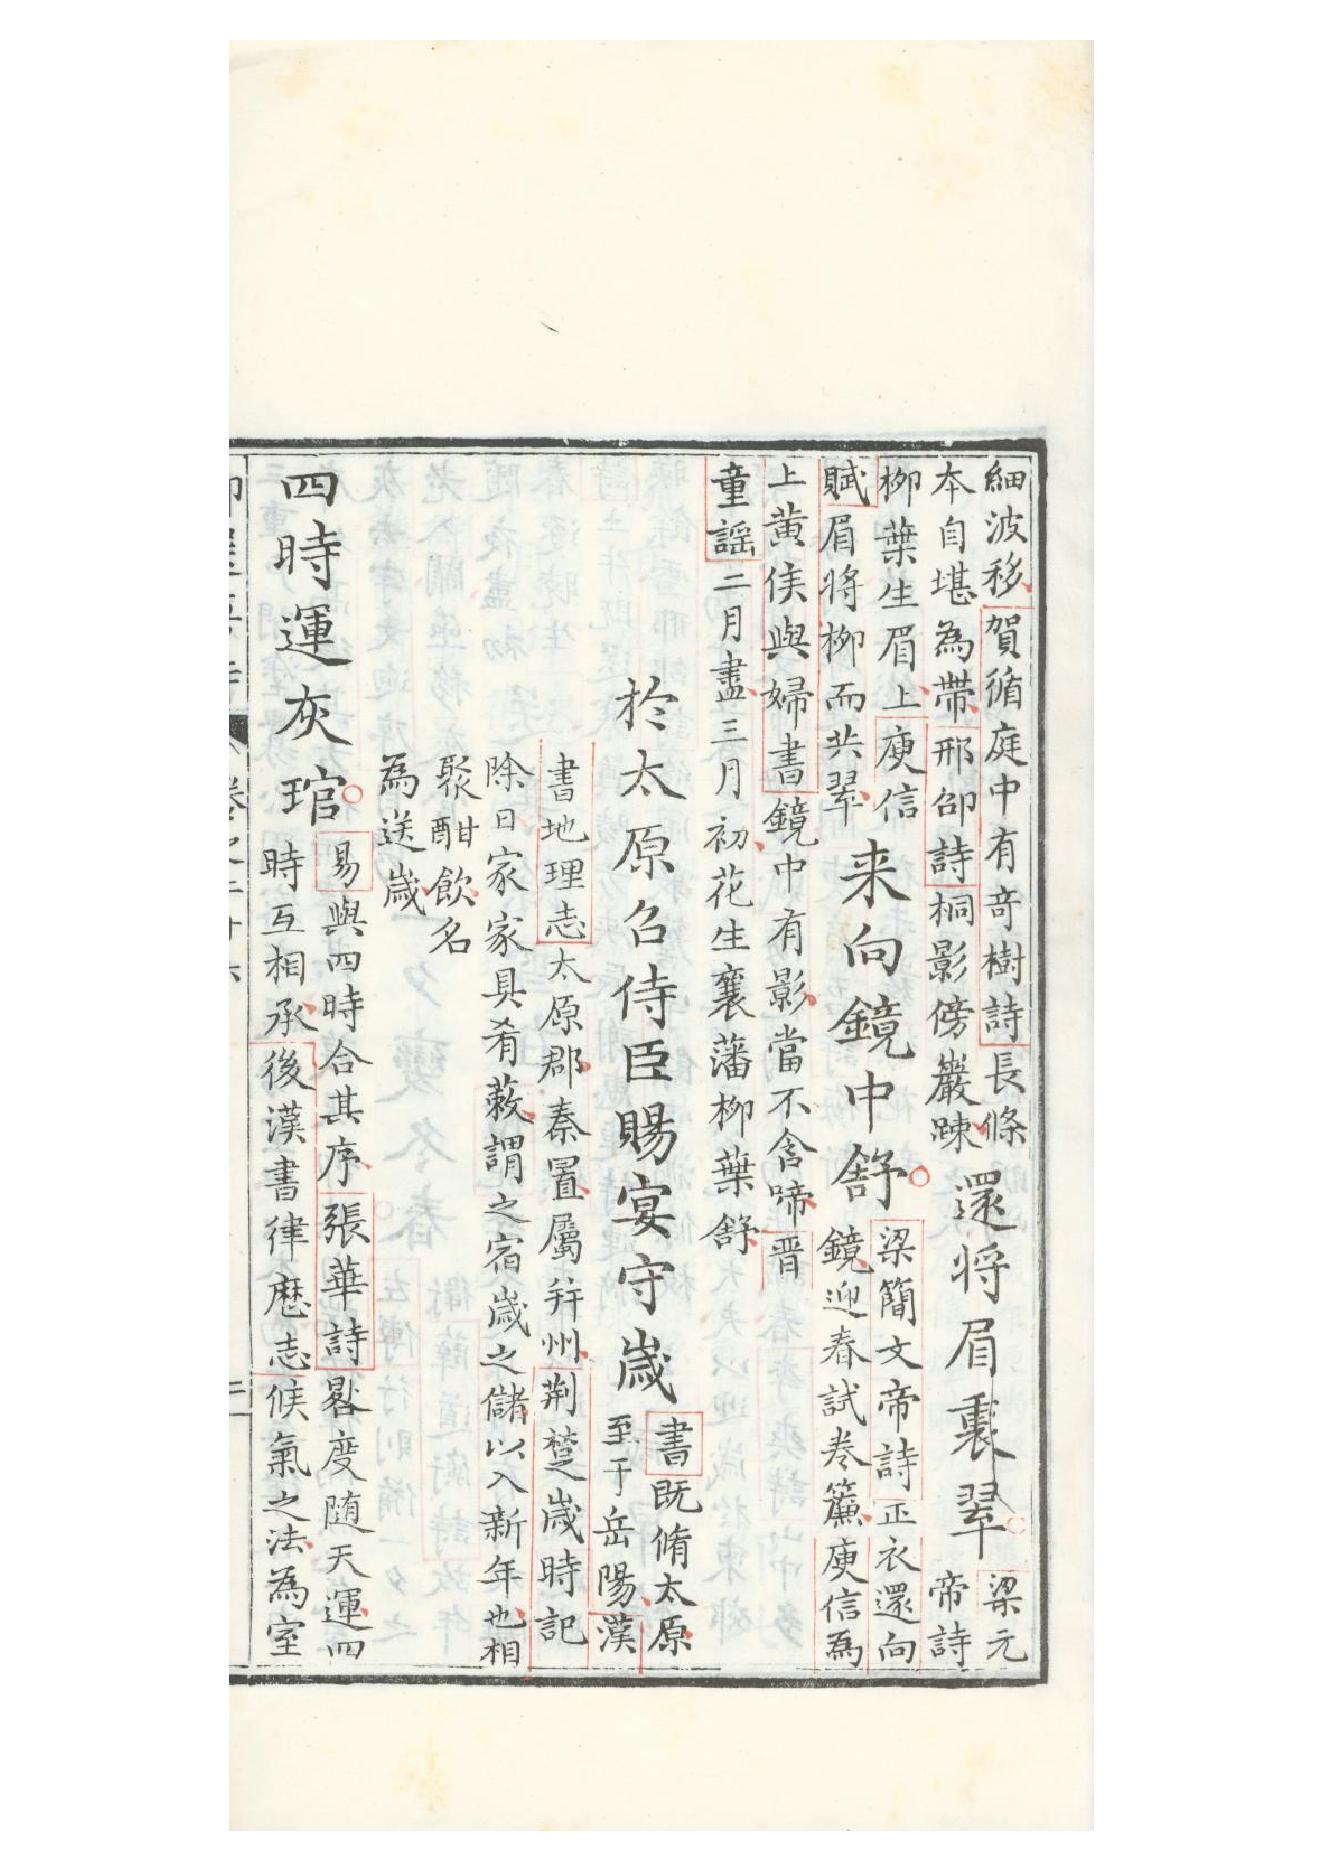 細波移賀循庭中有竒樹詩長條
本自堪為帶邢邵詩桐影傍巖疎
還将眉裏翠
梁元
帝詩
栁葉生眉上庾信
賦眉將栁而共翠
来向鏡中舒
梁簡文帝詩正衣還向
鏡迎春試卷簾庾信為
上黄侯與婦書鏡中有影當不含啼晋
童謡二月盡三月初花生襄藩栁葉舒
於太原召侍臣賜宴守嵗
書既脩太原
至于岳陽漢
書地理志太原郡秦置屬并州荆楚嵗時記
除日家家具肴蔌謂之宿嵗之儲以入新年也相
聚酣飲名
為送嵗
四時運灰琯
易與四時合其序張華詩晷度随天運四
時互相承後漢書律厯志候氣之法為室